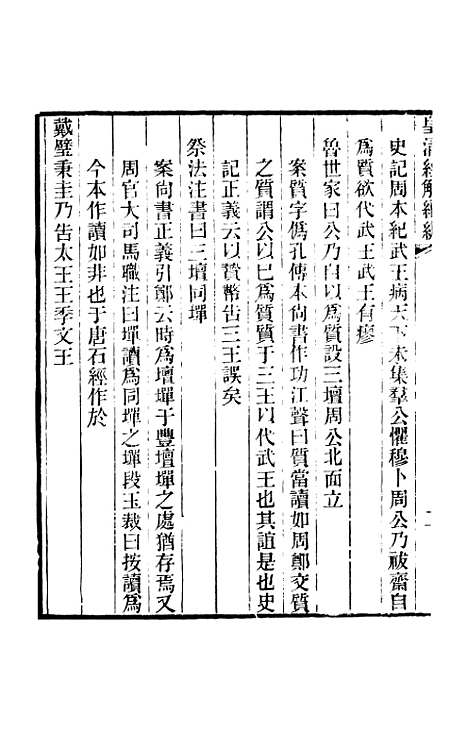 皇清經解續編
史記周本紀武王病天下未集羣公懼穆卜周公乃祓齋自
爲質欲代武王武王有瘳
魯世家曰公乃自以爲質設三壇周公北面立
案質字僞孔傳本尙書作功江聲曰質當讀如周鄭交質
之質謂公以已爲質質于三王以代武王也其誼是也史
記正義云以贄幣吿三王誤矣
祭法注書曰三壇同墠
案尙書正義引鄭云時爲壇墠于豐壇墠之處猶存焉又
周官大司馬職注曰墠讀爲同墠之墠段玉裁曰按讀爲
今本作讀如非也于唐石經作於
戴璧秉圭乃吿太王王季文王